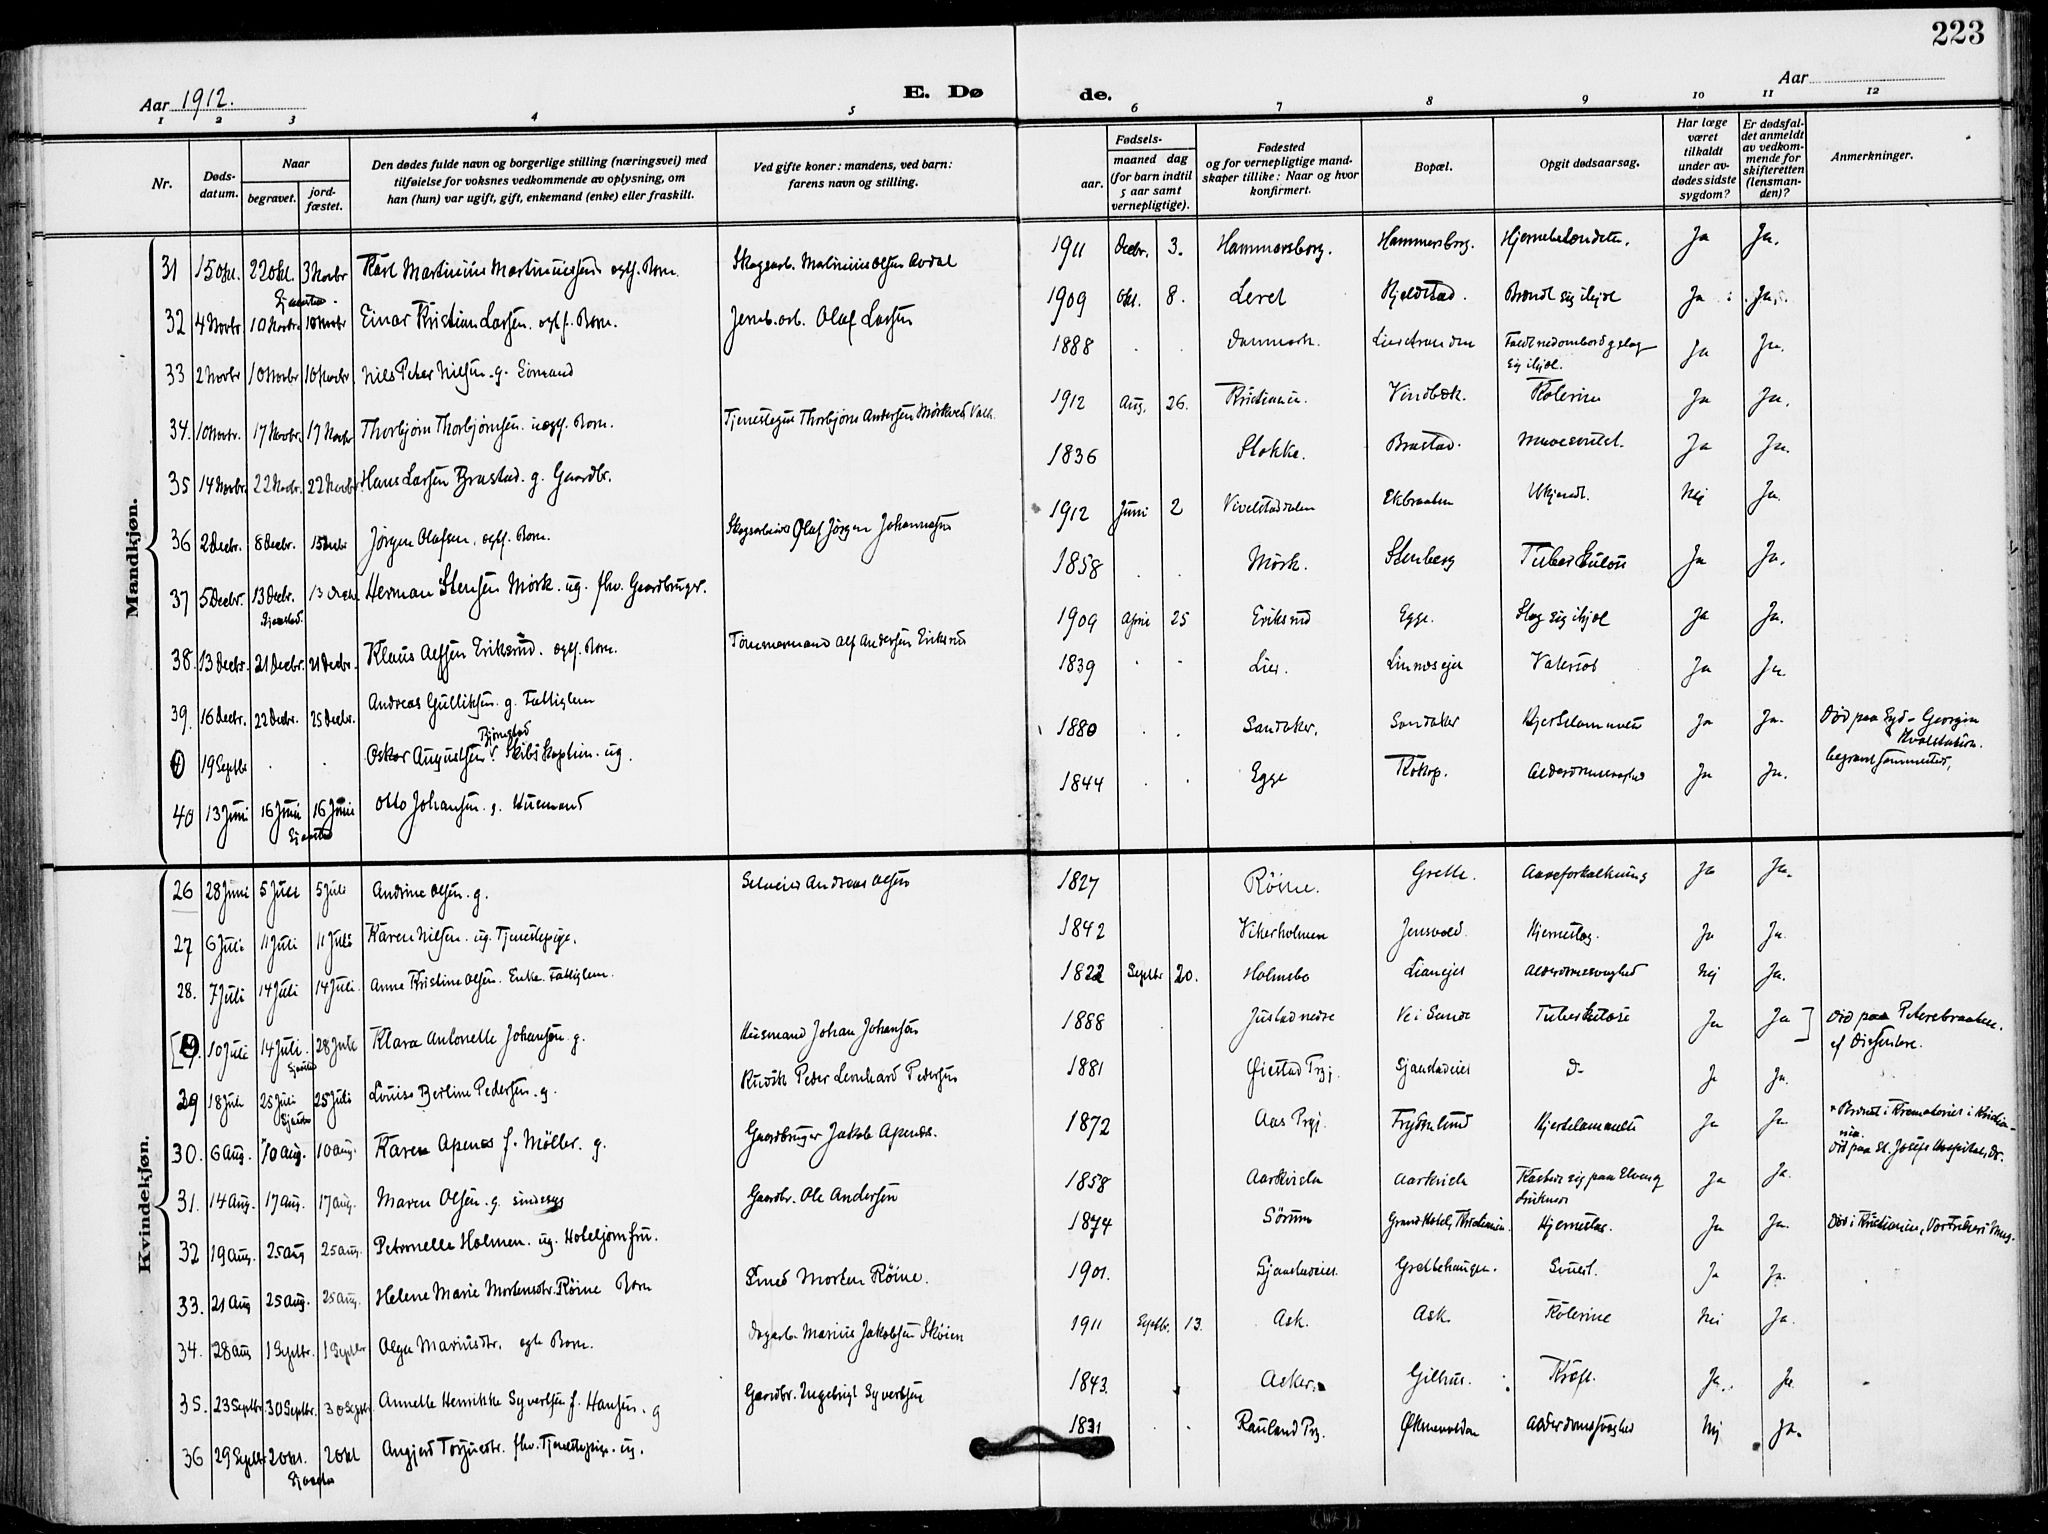 223
Aar 1912.
E. Dø
de.
Aar
1 2 3 4 5 6 7 8 9 10 11 12
Nr.
Døds-
datum.
Naar
begravet.
jord-
fæstet.
Den dødes fulde navn og borgerlige stilling (næringsvei) med
tilføielse for voksnes vedkommende av oplysning, om
han (hun) var ugift, gift, enkemand (enke) eller fraskilt.
Ved gifte koner: mandens, ved barn:
farens navn og stilling.
Fødsels-
aar.
maaned dag
(for barn indtil
5 aar samt
vernepligtige).
Fødested
og for vernepligtige mand-
skaper tillike: Naar og hvor
konfirmert.
Bopæl.
Opgit dødsaarsag.
Har læge
været
tilkaldt
under av-
dødes sidste
sygdom?
Er dødsfal-
det anmeldt
av vedkom-
mende for
skifteretten
(lensman-
den)?
Anmerkninger.
Mandkjøn.
31 15 Okt. 22 Okt. 3 Novbr Karl Martinius Martiniussen ogtf. Barn. Skogsarb. Martinius Olsen Avdal 1911 Decbr. 3. Hammersborg. Hammersborg. Hjernebetændelse. Ja Ja.
Sjaastad.
32 4 Novbr 10 Novbr. 10 Novbr Einar Kristian Larsen. egtf. Barn. Jernb.arb. Olaf Larsen 1909 Okt. 8. Leret Hjeldstad. Brændt sig ihjel Ja Ja.
33 2 Novbr 10 Novbr 10 Novbr. Nils Peter Nilsen. g. Sømand 1888 Danmark. Lierstranden Faldt ned ombord og slog
sig ihjel. Ja Ja.
34. 10 Novbr. 17 Novbr. 17 Novbr Thorbjørn Thorbjørnsen. uegtf. Barn. Tjenestegut Thorbjørn Andersen Mørkved 1912 Aug. 26. Kristiania. Vindbæk. Kolerine Ja Ja.
35 14 Novbr. 22 Novbr. 22 Novbr. Hans Larsen Brastad. g. Gaardbr. 1836 Stokke. Brastad. Mavesvulst. Ja Ja.
36 2 Decbr. 8 Decbr. 15 Decbr Jørgen Olafsen. egtf. Barn. Skogsarbeider Olaf Jørgen Johannesen 1912 Juni 2 Vivelstaddalen Ekbraaten Ukjendt. Nei Ja.
37 5 Decbr. 13 Decbr. 13 Decbr. Herman Stensen Mørk. ug. fhv. Gaardbruger. 1858 Mørk. Stenberg Tuberkulose Ja Ja.
Sjaastad.
38. 13 Decbr. 21 Decbr. 21 Decbr. Klaus Alfsen Eriksrud. egtf. Barn. Tømmermand Alf Andersen Eriksrud 1909 April 25 Eriksrud Egge. Slog sig ihjel Ja Ja.
39. 16 Decbr. 22 Decbr. 25 Decbr. Andreas Gulliksen. g. Fattiglem 1839 Lier. Linneseier Vatersot Ja Ja.
19 Septbr Oskar Augustsen Bjørnstad Skibskaptein. ug. 1880 Sandaker. Sandaker Hjertelammelse Ja Ja. Død paa Syd-Georgien
Hvalstation.
begravet sammesteds.
40 13 Juni 16 Juni 16 Juni Otto Johansen. g. Husmand 1844 Egge Kokop. Alderdomssvaghed Ja Ja.
Sjaastad
Kvindekjøn.
26 28 Juni 5 Juli 5 Juli Andrine Olsen. g. Selveier Andreas Olsen 1827 Røine. Grette. Aareforkalkning Ja Ja.
27 6 Juli 11 Juli 11 Juli Karen Nilsen. ug. Tjenestepige. 1842 Vikerholmen Jensvold. Hjerneslag. Ja Ja.
28. 7 Juli 14 Juli 14 Juli. Anne Kristine Olsen. Enke. Fattiglem. 1822 Septbr 20. Holmsbo Lianeiet Alderdomssvaghed Nei Ja.
10 Juli 14 Juli. 28 Juli Klara Antonette Johansen g. Husmand Johan Johansen 1888 Justad nedre Ve i Sande Tuberkulose Ja Ja Død paa Petersbraaten.
Sjaastad
29 18 Juli 25 Juli 25 Juli Louise Berline Pedersen. g. Peder Leonhard Pedersen 1881 Øiestad Prgj. Sjaastadeiet D- Ja Ja.
Sjaastad
30. 6 Aug. 10 Aug. 10 Aug. Karen Apenes f. Møller. g. Gaardbruger Jakob Apenes. 1872 Aas Prgj. Frydenlund Hjertelammelse Ja Ja. Brændt i Krematoriet i Kristia-
nia.
Død paa St. Josefs Hospital, Dr.
31. 14 Aug. 17 Aug. 17 Aug. Maren Olsen. g. sindssyg Gaardbr. Ole Andersen 1858 Aarkvisla Aarkvisla Kastet sig paa Elven og
druknet Ja Ja.
32 19 Aug. 25 Aug 25 Aug. Petronelle Holmen. ug. Hoteljomfru. 1874 Sørum Grand Hotel, Kristiania. Hjerneslag. Ja Ja.
33. 21 Aug 25 Aug. 25 Aug. Helene Marie Mortensdtr. Røine Barn Smed Morten Røine. 1901. Sjaastadeiet. Grettehaugen. Svulst. Ja Ja.
34. 28 Aug 1 Septbr. 1 Septbr Olga Mariusdtr. egte Barn. Dagarb. Marius Jakobsen Skoien 1911 Septbr. 13. Ask. Ask. Kolerine Nei Ja.
35. 23 Septbr. 30 Septbr. 30 Septbr. Annette Henrikke Syvertsen f. Hansen. g Gaardbr. Ingebrigt Syvertsen 1843. Asker. Gilhus. Kræft. Ja. Ja.
36 29 Septbr 2 Okt. 2 Okt Angjerd Torjusdtr. fhv. Tjenestepige. ug. 1831 Rauland Prg. Alderdomssvaghed Nei Ja.
Sjaastad